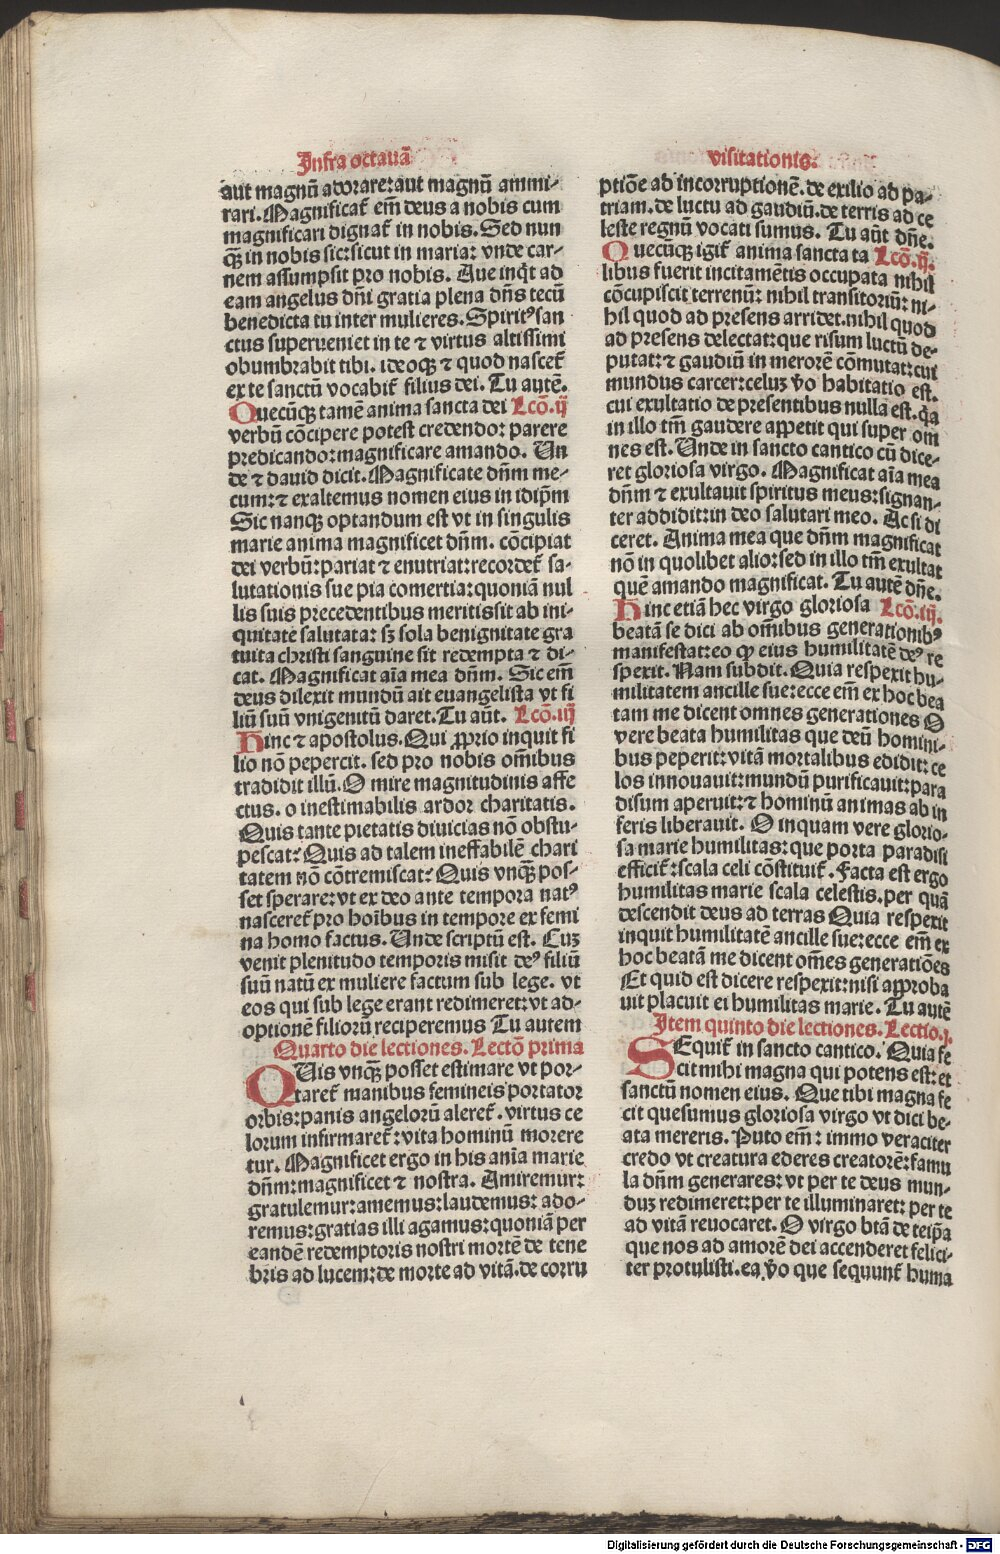 Infra octauā
aut magnū adorare: aut magnū ammi-
rari. Magnificat̄ em̄ deus a nobis cum
magnificari dignat̄ in nobis. Sed nun
q̄ꝫ in nobis sic: sicut in maria: vnde car-
nem assumpsit pro nobis. Aue inq̇t ad
eam angelus dn̄i gratia plena dn̄s tecū
benedicta tu inter mulieres. Spiritꝰ san
ctus superueniet in te ⁊ virtus altissimi
obumbrabit tibi. ideoqꝫ ⁊ quod nascet̄
ex te sanctū vocabit̄ filius dei. Tu autē.
Quecūqꝫ tamē anima sancta dei Lcō. ij
verbū cōcipere potest credendo: parere
predicando: magnificare amando. Un
de ⁊ dauid dicit. Magnificate dn̄m me-
cum: ⁊ exaltemus nomen eius in idip̄m
Sic nanqꝫ optandum est vt in singulis
marie anima magnificet dn̄m. cōcipiat
dei verbū: pariat ⁊ enutriat: recordet̄ sa-
lutationis sue pia comertia: quoniā nul
lis suis precedentibus meritis sit ab ini-
quitate saluata: sꝫ sola benignitate gra
tuita christi sanguine sit redempta ⁊ di-
cat. Magnificat aīa mea dn̄m. Sic em̄
deus dilexit mundū ait euangelista vt fi
liū suū vnigenitū daret. Tu aūt. Lcō. iij
Hinc ⁊ apostolus. Qui ꝓprio inquit fi
lio nō pepercit. sed pro nobis om̄ibus
tradidit illū. O mire magnitudinis affe
ctus. o inestimabilis ardor charitatis.
Quis tante pietatis diuicias nō obstu-
pescat: Quis ad talem ineffabilē chari
tatem nō cōtremiscat: Quis vnq̄ꝫ pos-
set sperare: vt ex deo ante tempora natꝰ
nasceret̄ pro hoībus in tempore ex femi
na homo factus. Unde scriptū est. Cuꝫ
venit plenitudo temporis misit deꝰ filiū
suū natū ex muliere factum sub lege. vt
eos qui sub lege erant redimeret: vt ad-
optionē filiorū reciperemus Tu autem
Quarto die lectiones. Lectō prima
QUis vnq̄ꝫ posset estimare vt por-
taret̄ manibus femineis portator
orbis: panis angelorū aleret̄. virtus ce
lorum infirmaret̄: vita hominū morere
tur. Magnificet ergo in his anīa marie
dn̄m: magnificet ⁊ nostra. Amiremur:
gratulemur: amemus: laudemus: ado-
remus: gratias illi agamus: quoniā per
eandē redemptoris nostri mortē de tene
bris ad lucem: de morte ad vitā. de corru
visitationis.
ptiōe ad incorruptionē. de exilio ad pa-
triam. de luctu ad gaudiū. de terris ad ce
leste regnū vocati sumus. Tu aūt dn̄e.
Quecūqꝫ igit̄ anima sancta ta Lcō. ij.
libus fuerit incitamētis occupata nihil
cōcupiscit terrenū: nihil transitoriū: ni-
hil quod ad presens arridet. nihil quod
ad presens delectat: que risum luctū de-
putat: ⁊ gaudiū in merorē cōmutat: cui
mundus carcer: celuꝫ v̄o habitatio est.
cui exultatio de presentibus nulla est. q̇a
in illo tm̄ gaudere appetit qui super om
nes est. Unde in sancto cantico cū dice-
ret gloriosa virgo. Magnificat aīa mea
dn̄m ⁊ exultauit spiritus meus: signan-
ter addidit: in deo salutari meo. Ac si di
ceret. Anima mea que dn̄m magnificat
nō in quolibet alio: sed in illo tm̄ exultat
quē amando magnificat. Tu autē dn̄e.
Hinc etiā hec virgo gloriosa Lcō. iij.
beatā se dici ab om̄ibus generationibꝰ
manifestat: eo ꝙ eius humilitatē deꝰ re
spexit. Nam subdit. Quia respexit hu-
militatem ancille sue: ecce em̄ ex hoc bea
tam me dicent omnes generationes O
vere beata humilitas que deū homini-
bus peperit: vitā mortalibus edidit: ce
los innouauit: mundū purificauit: para
disum aperuit: ⁊ hominū animas ab in
feris liberauit. O inquam vere glorio-
sa marie humilitas: que porta paradisi
efficit̄: scala celi cōstituit̄. Facta est ergo
humilitas marie scala celestis. per quā
descendit deus ad terras Quia respexit
inquit humilitatē ancille sue: ecce em̄ ex
hoc beatā me dicent om̄es generatiōes
Et quid est dicere respexit: nisi approba
uit placuit ei humilitas marie. Tu autē
Item quinto die lectiones. Lectio. j.
SEquit̄ in sancto cantico. Quia fe
cit mihi magna qui potens est: et
sanctū nomen eius. Que tibi magna fe
cit quesumus gloriosa virgo vt dici be-
ata mereris. Puto em̄: immo veraciter
credo vt creatura ederes creatorē: famu
la dn̄m generares: vt per te deus mun-
duꝫ redimeret: per te illuminaret: per te
ad vitā reuocaret. O virgo btā de teip̄a
que nos ad amorē dei accenderet felici-
ter protulisti. ea v̄o que sequunt̄ huma
Digitalisierung gefördert durch die Deutsche Forschungsgemeinschaft - DFG